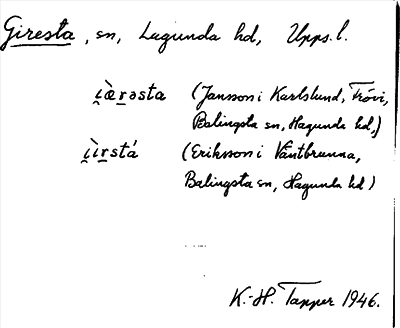 Giresta, sn, Lagunda hd, Upps. l.
i̯æ̀r̲əsta (Jansson i Karlslund, Frövi,
Balingsta sn, Hagunda hd,)
i̯ìr̲stá (Eriksson i Väntbrunna,
Balingsta sn, Hagunda hd)
K.-H. Tapper 1946.